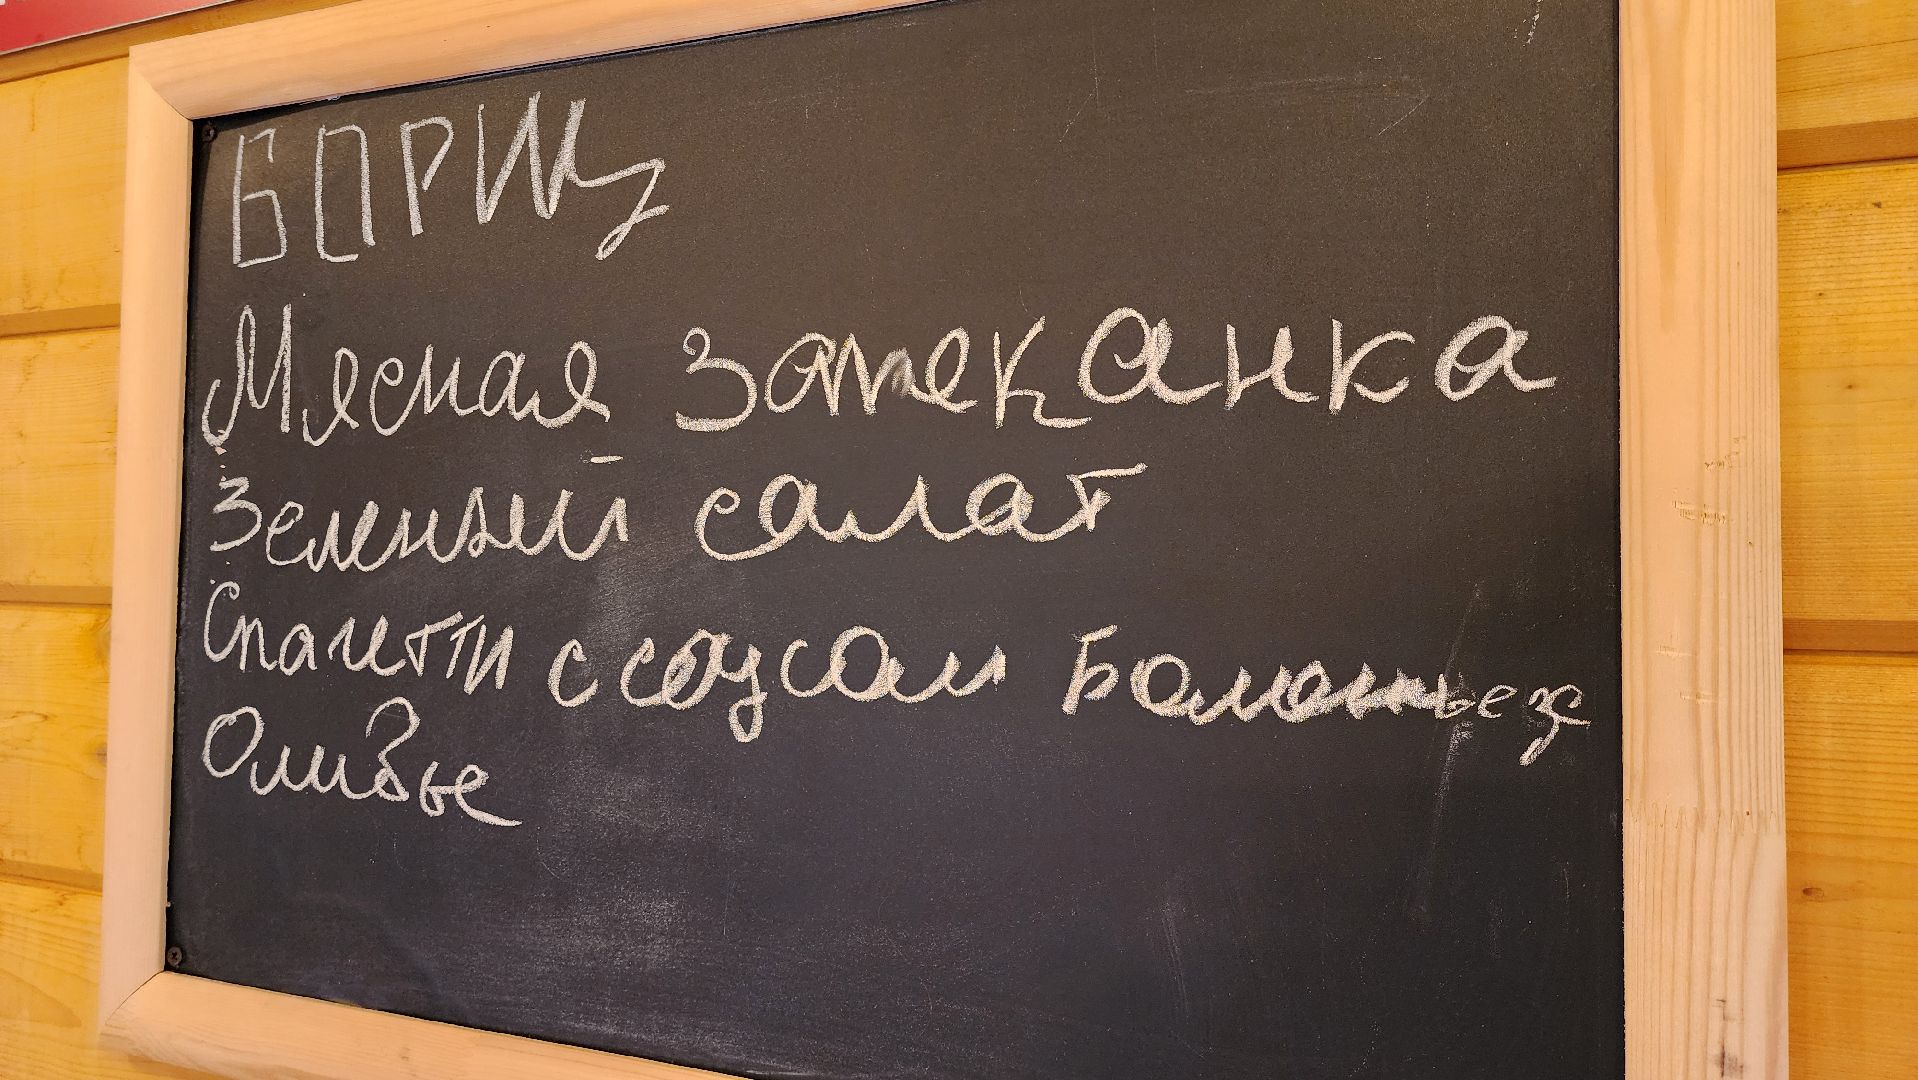 БОРЩ
Мясная запеканка
Зеленый салат
Спагетти с соусом Болоньезе
Оливье